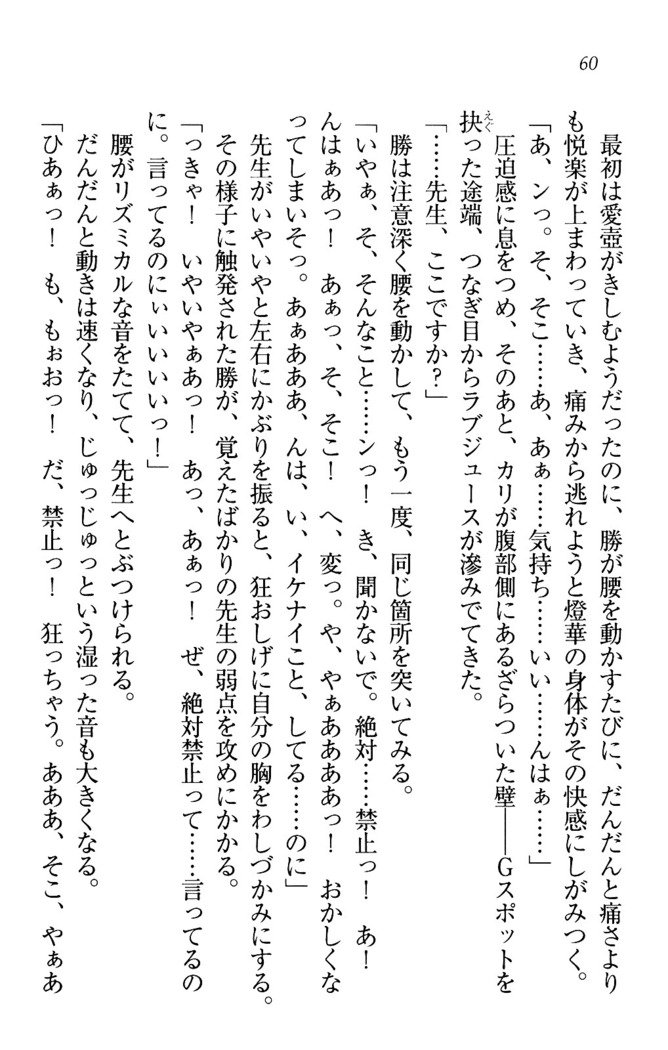 60
最初は愛壺がきしむようだったのに、勝が腰を動かすたびに、だんだんと痛さより
も悦楽が上まわっていき、痛みから逃れようと燈華の身体がその快感にしがみつく。
「あ、ンっ。そ、そこ……あ、あぁ……気持ち……いい……んはぁ……」
圧迫感に息をつめ、そのあと、カリが腹部側にあるざらついた壁――Gスポットを
抉った途端、つなぎ目からラブジュースが滲みでてきた。
えぐ
「……先生、ここですか？」
勝は注意深く腰を動かして、もう一度、同じ箇所を突いてみる。
「いやぁ、そ、そんなこと……ンっ！　き、聞かないで。絶対……禁止っ！　あ！
んはぁあっ！　あぁっ、そ、そこ！　へ、変っ。や、やぁああああっ！　おかしくな
ってしまいそっ。あぁあああ、んは、い、イケナイこと、してる……のに」
先生がいやいやと左右にかぶりを振ると、狂おしげに自分の胸をわしづかみにする。
その様子に触発された勝が、覚えたばかりの先生の弱点を攻めにかかる。
「っきゃ！　いやいやぁあっ！　あっ、あぁっ！　ぜ、絶対禁止って……言ってるの
に。言ってるのにぃいいいいっ！」
腰がリズミカルな音をたてて、先生へとぶつけられる。
だんだんと動きは速くなり、じゅっじゅっという湿った音も大きくなる。
「ひあぁっ！　も、もぉおっ！　だ、禁止っ！　狂っちゃう。あああ、そこ、やぁあ